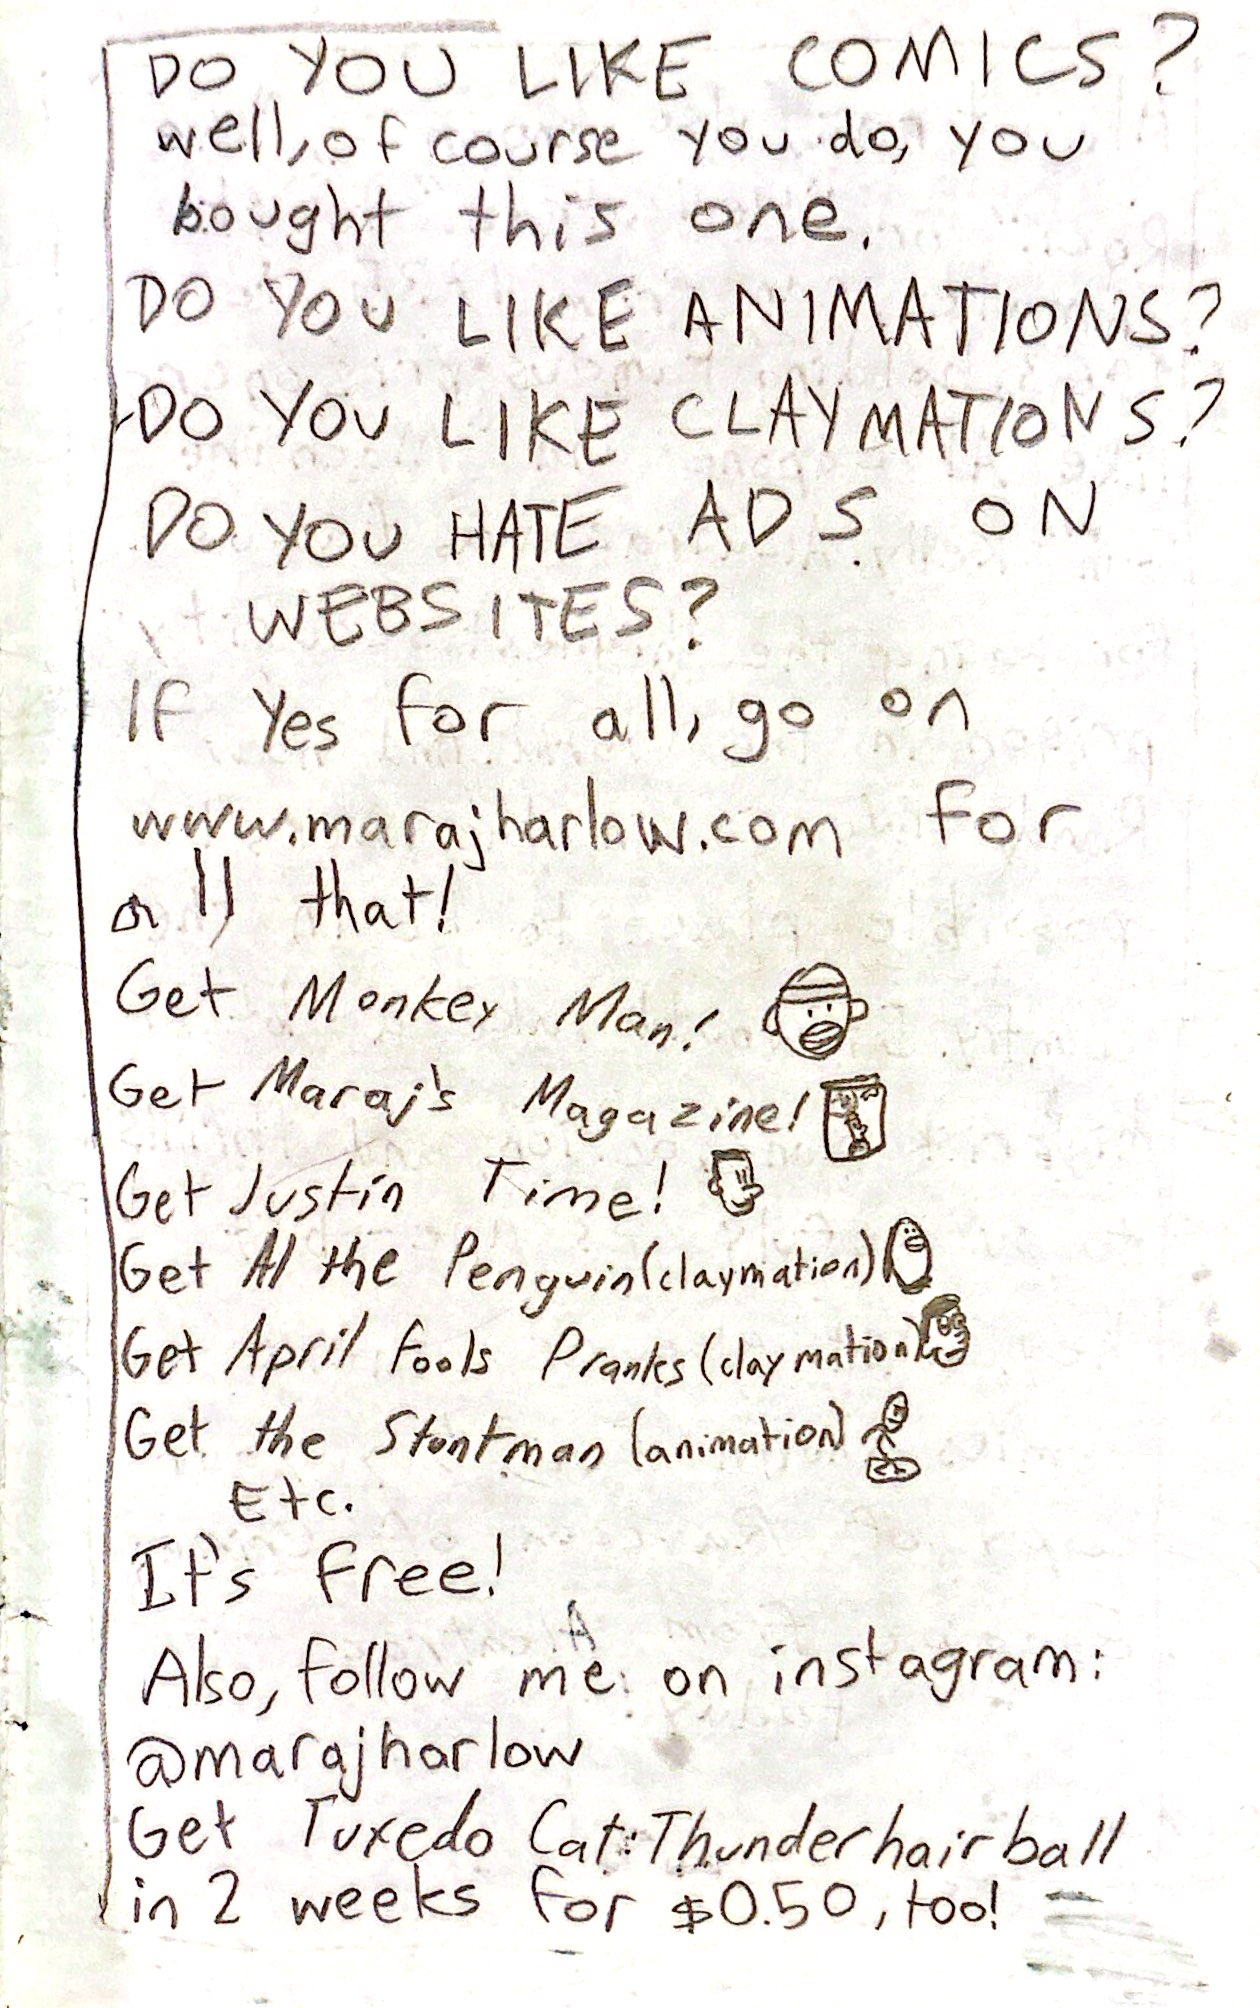 DO YOU LIKE COMICS?
well, of course you do, you
bought this one.
DO YOU LIKE ANIMATIONS?
DO YOU LIKE CLAYMATIONS?
DO YOU HATE ADS ON
WEBSITES?
If Yes for all, go on
www.marajharlow.com for
all that!
Get Monkey Man!
Get Maraj's Magazine!
Get Justin Time!
Get Al the Penguin (claymation)
Get April Fools Pranks (claymation)
Get the Stuntman (animation)
Etc.
It's free!
Also, follow me on instagram:
@marajharlow
Get Tuxedo Cat: Thunderhairball
in 2 weeks for $0.50, too!